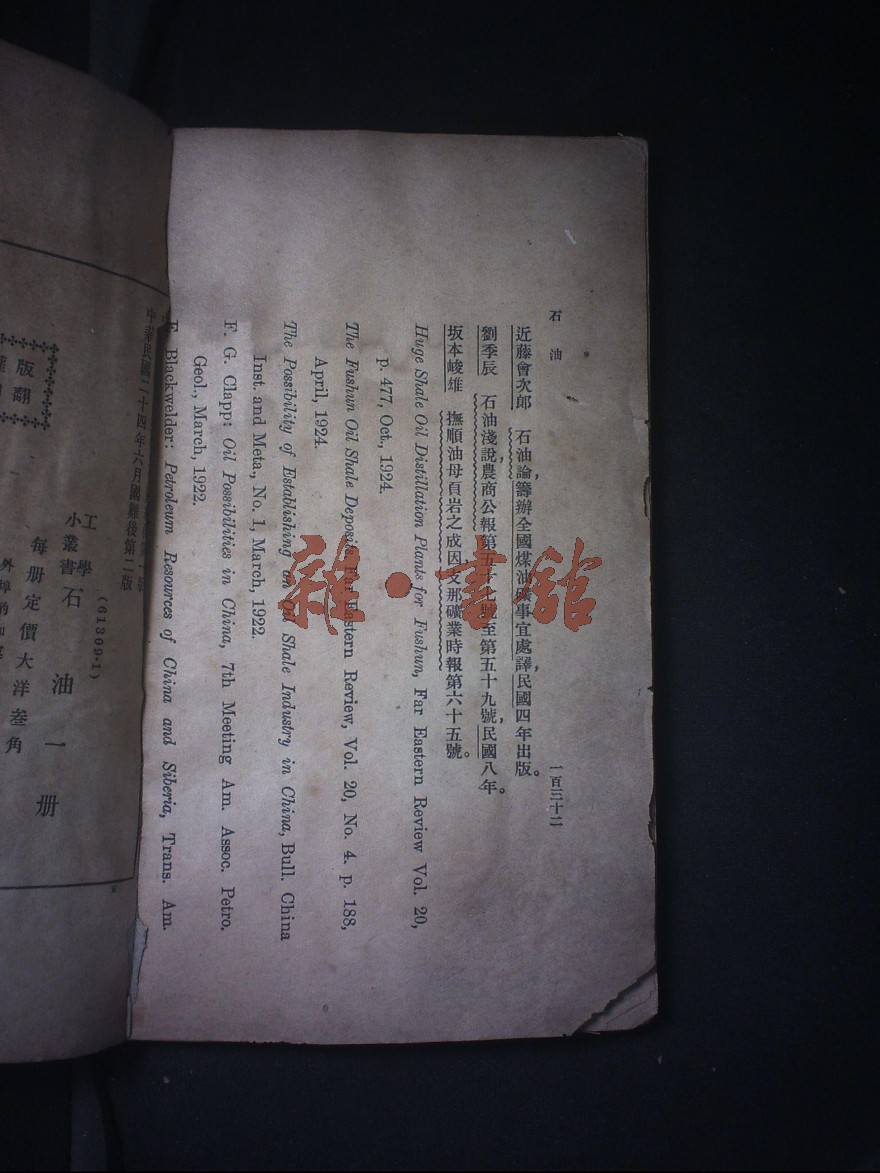 石油
一百三十二
近藤會次郎　石油論,籌辦全國煤油礦事宜處譯,民國四年出版。
劉季辰　石油淺說,農商公報第五十七號至第五十九號,民國八年。
坂本峻雄　撫順油母頁岩之成因,支那礦業時報第六十五號。
Huge Shale Oil Distillation Plants for Fushun, Far Eastern Review Vol. 20,
p. 477, Oct., 1924.
The Fushun Oil Shale Deposits, Far Eastern Review, Vol. 20, No. 4. p. 188,
April, 1924.
The Possibility of Establishing an Oil Shale Industry in China, Bull. China
Inst. and Meta., No. 1, March, 1922.
F. G. Clapp: Oil Possibilities in China, 7th Meeting Am. Assoc. Petro.
Geol., March, 1922.
E. Blackwelder: Petroleum Resources of China and Siberia, Trans. Am.
中華民國二十四年六月國難後第二版
(61809·1)
工學小叢書 石油一册
每册定價大洋叁角
版翻
雜·書館